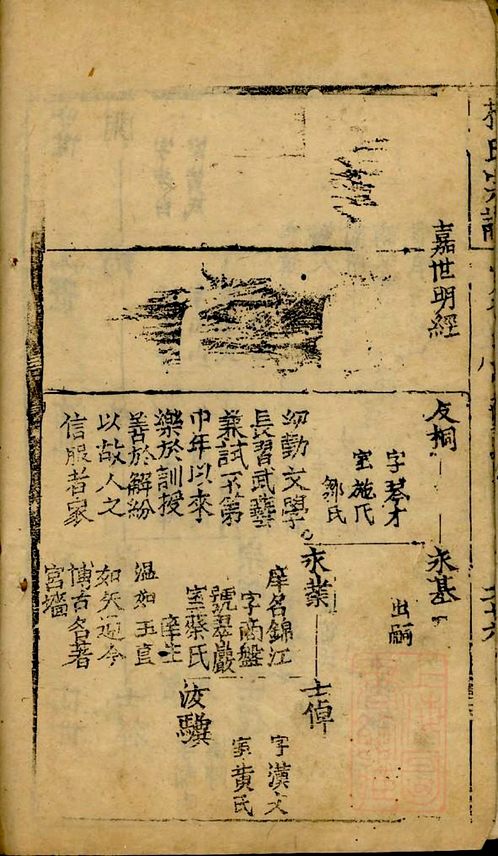 嘉世明經
友桐
字琴才
室施氏
鄒氏
幼勤文學
長習武藝
兼試不第
中年以來
樂於訓授
善於解紛
以故人之
信服者眾
永基
出嗣
永業
庠名錦江
字商盤
號翠巖
室蔡氏
庠生
溫如玉直
如矢通今
博古名著
宮墻
士倬
字漢文
室黄氏
汝驥